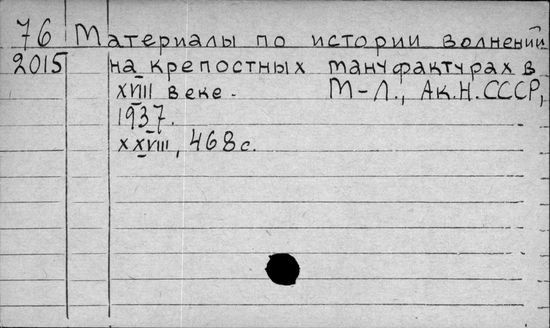 76 Материалы по истории волнений
2015 на крепостных мануфактурах в
XVIII веке. М-Л., Ак.Н.СССР,
1937.
XXVIII, 468с.